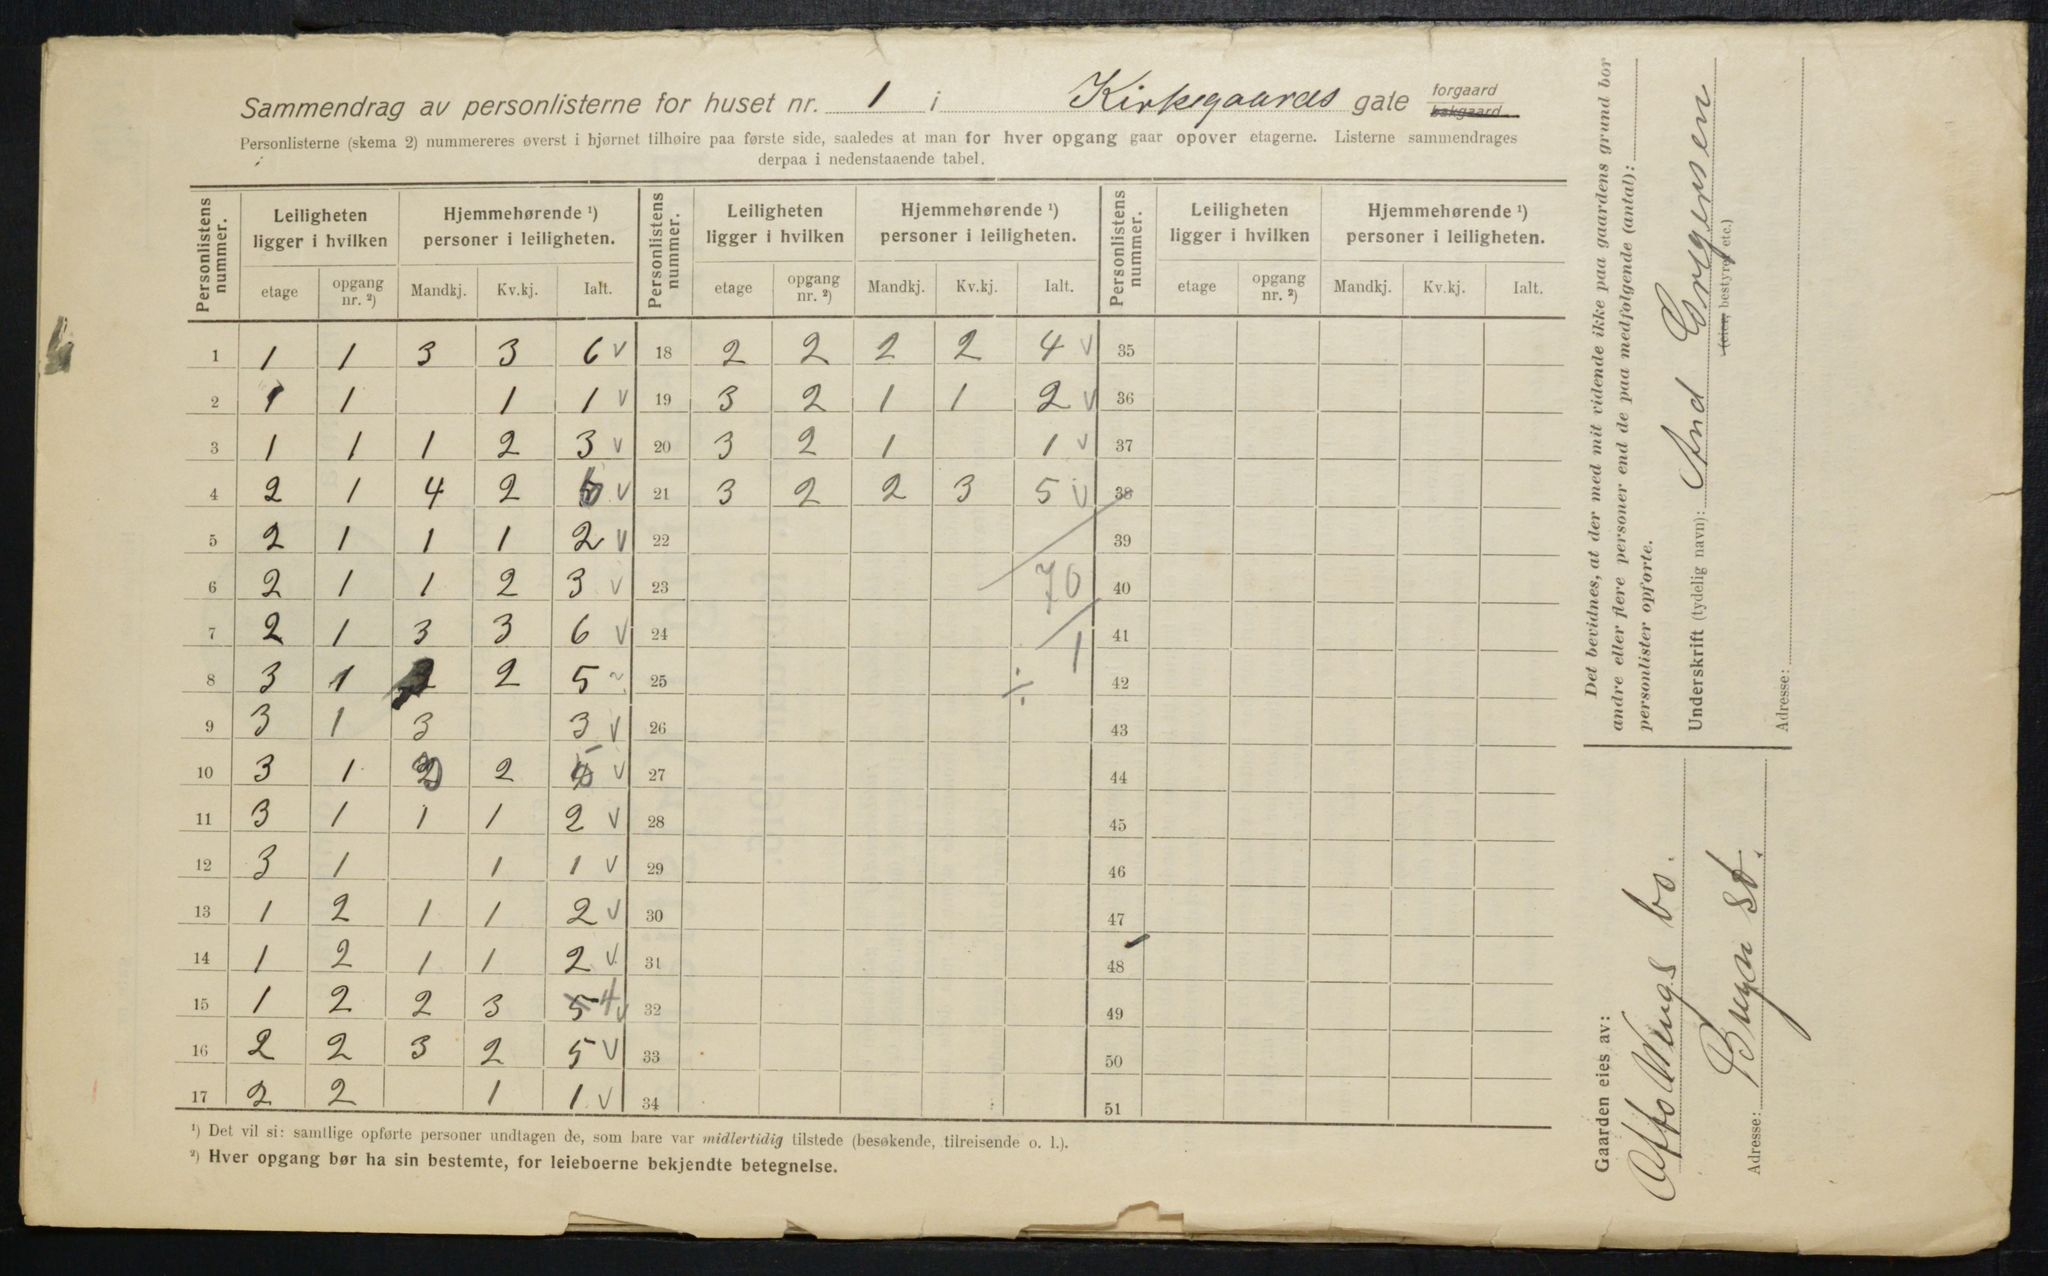 Sammendrag av personlisterne for huset nr. 1 i Kirkegaards gate forgaard bakgaard.
Personlisterne (skema 2) nummereres øverst i hjørnet tilhøire paa første side, saaledes at man for hver opgang gaar opover etagerne. Listerne sammendrages
derpaa i nedenstaaende tabel.
Personlistens nummer. Leiligheten ligger i hvilken Hjemmehørende ¹) personer i leiligheten. Personlistens nummer. Leiligheten ligger i hvilken Hjemmehørende ¹) personer i leiligheten. Personlistens nummer. Leiligheten ligger i hvilken Hjemmehørende ¹) personer i leiligheten.
etage opgang nr. ²) Mandkj. Kv.kj. Ialt. etage opgang nr. ²) Mandkj. Kv.kj. Ialt. etage opgang nr. ²) Mandkj. Kv.kj. Ialt.
1 1 1 3 3 6 V 18 2 2 2 2 4 V 35
2 1 1 1 1 V 19 3 2 1 1 2 V 36
3 1 1 1 2 3 V 20 3 2 1 1 V 37
4 2 1 4 2 V 21 3 2 2 3 5 V 38
5 2 1 1 1 2 V 22 39
6 2 1 1 2 3 V 23 70 40
7 2 1 3 3 6 V 24 1 41
8 3 1 2 5 25 ÷ 42
9 3 1 3 3 V 26 43
10 3 1 2 V 27 44
11 3 1 1 1 2 V 28 45
12 3 1 1 1 V 29 46
13 1 2 1 1 2 V 30 47
14 1 2 1 1 2 V 31 48
15 1 2 2 3 5 4 V 32 49
16 2 2 3 2 5 V 33 50
17 2 2 1 1 V 34 51
¹) Det vil si: samtlige opførte personer undtagen de, som bare var midlertidig tilstede (besøkende, tilreisende o. l.).
²) Hver opgang bør ha sin bestemte, for leieboerne bekjendte betegnelse.
Det bevidnes, at der med mit vidende ikke paa gaardens grund bor
andre eller flere personer end de paa medfølgende (antal):
personlister opførte.
Underskrift (tydelig navn): And Ergensen
(eier, bestyrer etc.)
Adresse:
Gaarden eies av:
bo.
Adresse: Bryn st.